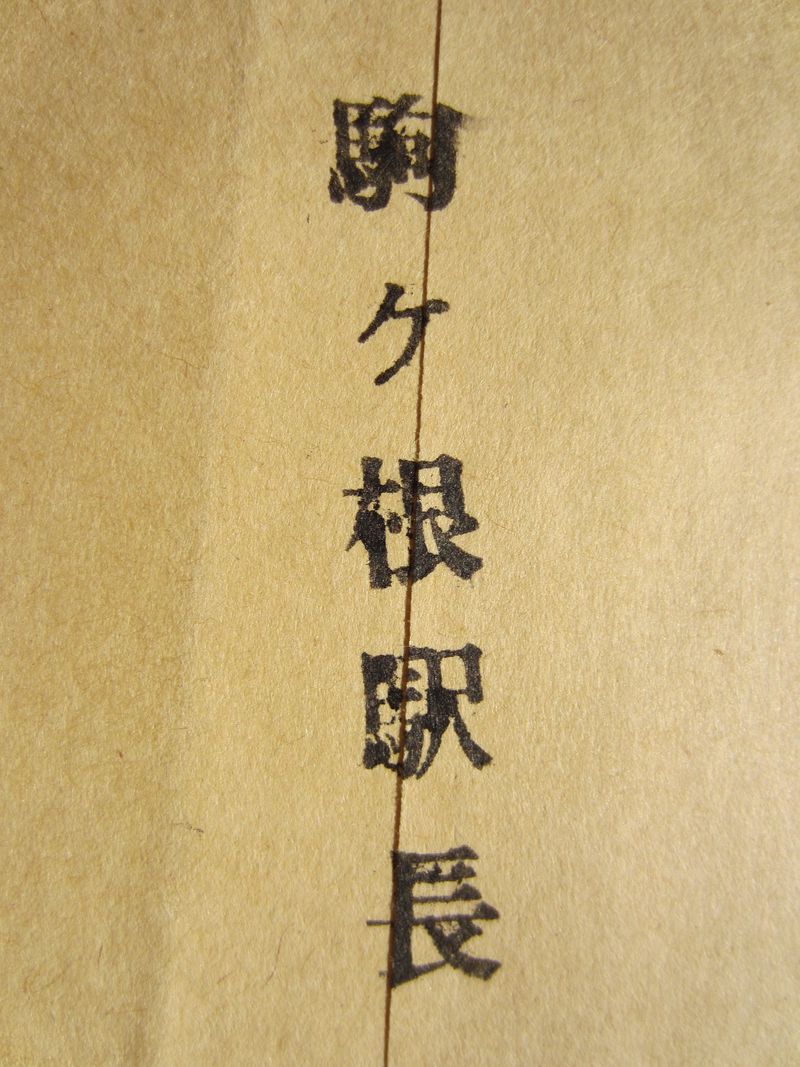 駒ケ根駅長